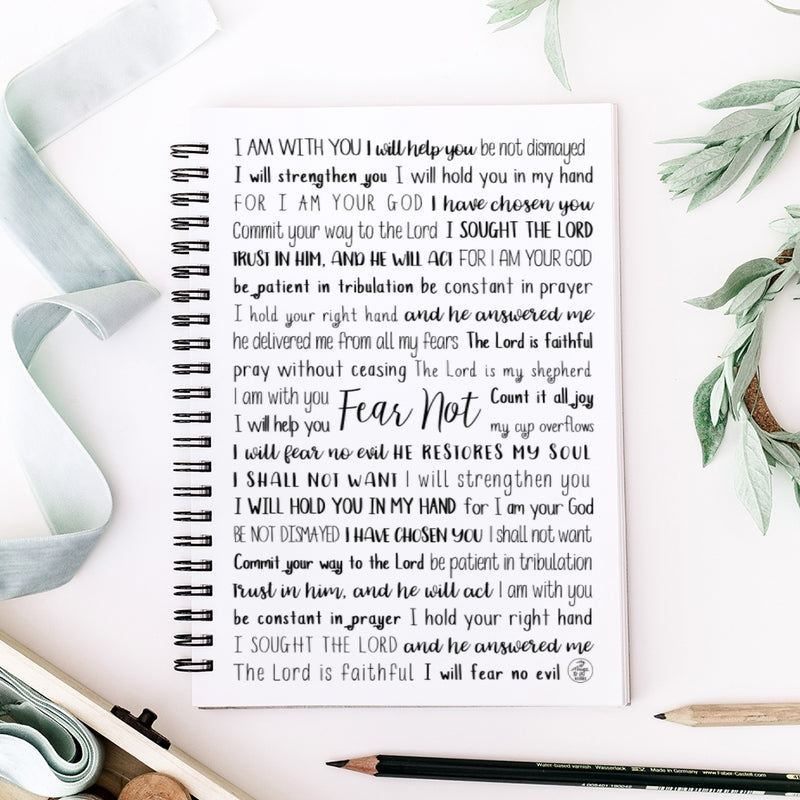 I AM WITH YOU I will help you be not dismayed
I will strengthen you I will hold you in my hand
FOR I AM YOUR GOD I have chosen you
Commit your way to the Lord I SOUGHT THE LORD
TRUST IN HIM, AND HE WILL ACT FOR I AM YOUR GOD
be patient in tribulation be constant in prayer
I hold your right hand and he answered me
he delivered me from all my fears The Lord is faithful
pray without ceasing The Lord is my shepherd
I am with you
I will help you
Fear Not
Count it all joy
my cup overflows
I will fear no evil HE RESTORES MY SOUL
I SHALL NOT WANT I will strengthen you
I WILL HOLD YOU IN MY HAND for I am your God
BE NOT DISMAYED I HAVE CHOSEN YOU I shall not want
Commit your way to the Lord be patient in tribulation
Trust in him, and he will act I am with you
be constant in prayer I hold your right hand
I SOUGHT THE LORD and he answered me
The Lord is faithful I will fear no evil
Water-based varnish Wasserlack Made in Germany www.Faber-Castell.com